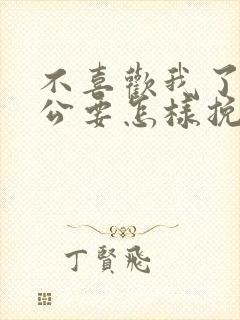 不喜歡我了
公要怎樣挽
丁賢飛